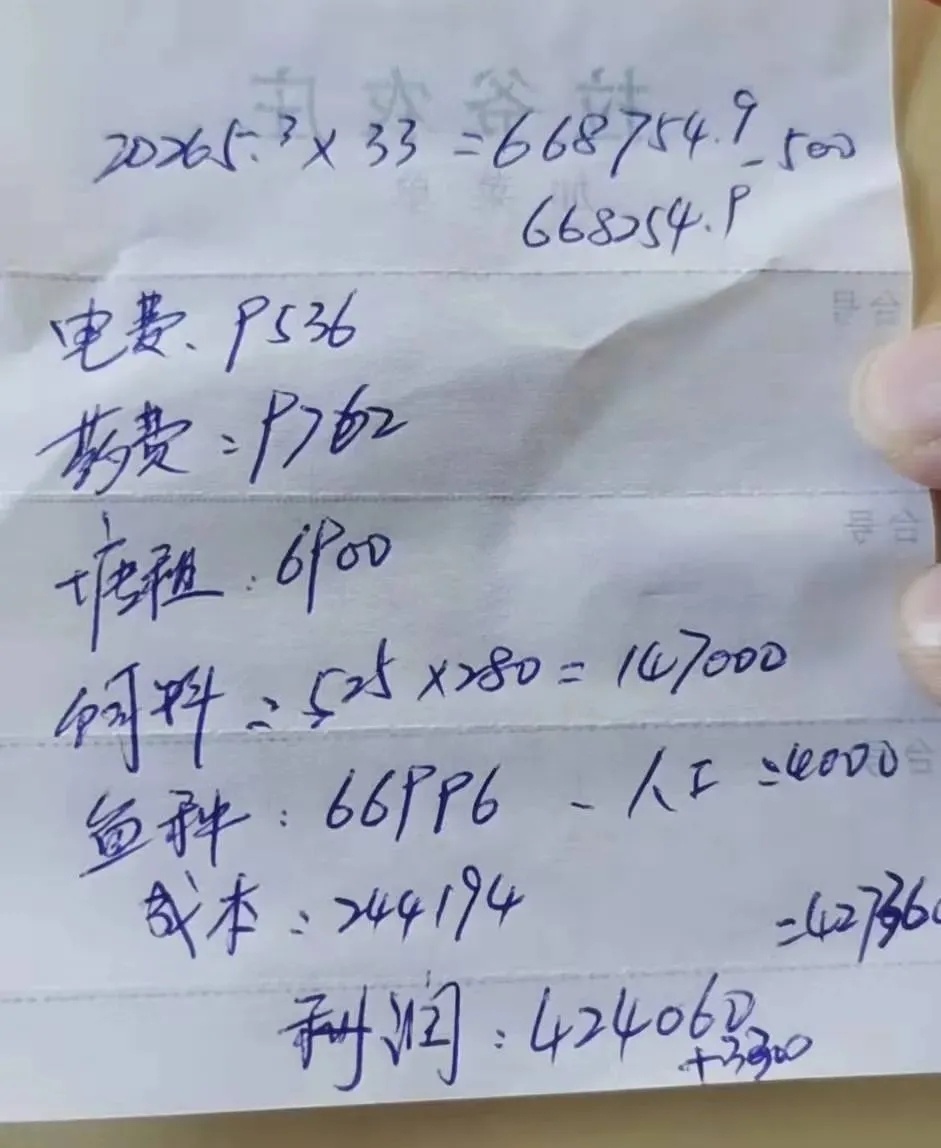 20265.3×33=668754.9-500
668254.9
台号
电费、9536
药费:9762
台号
塘租:6900
饲料:525×280=147000
鱼种:66996 - 人工:4000
成本:244194 =427360
利润:424060
+3300